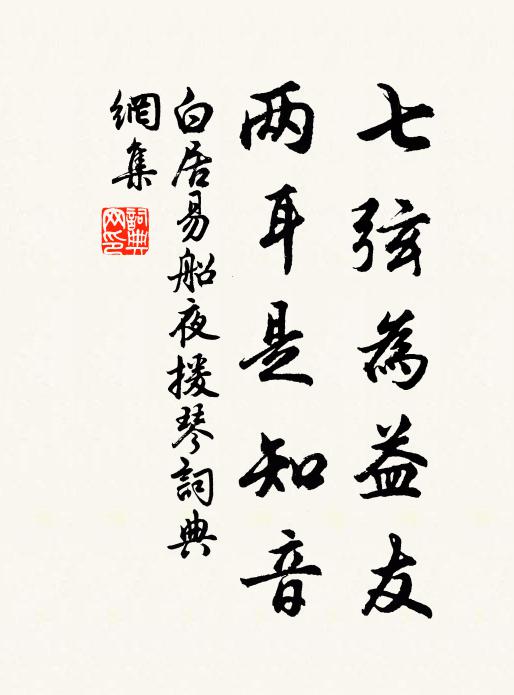 七弦為益友
两耳是知音
白居易船夜援琴詞典
網集
詞典网印